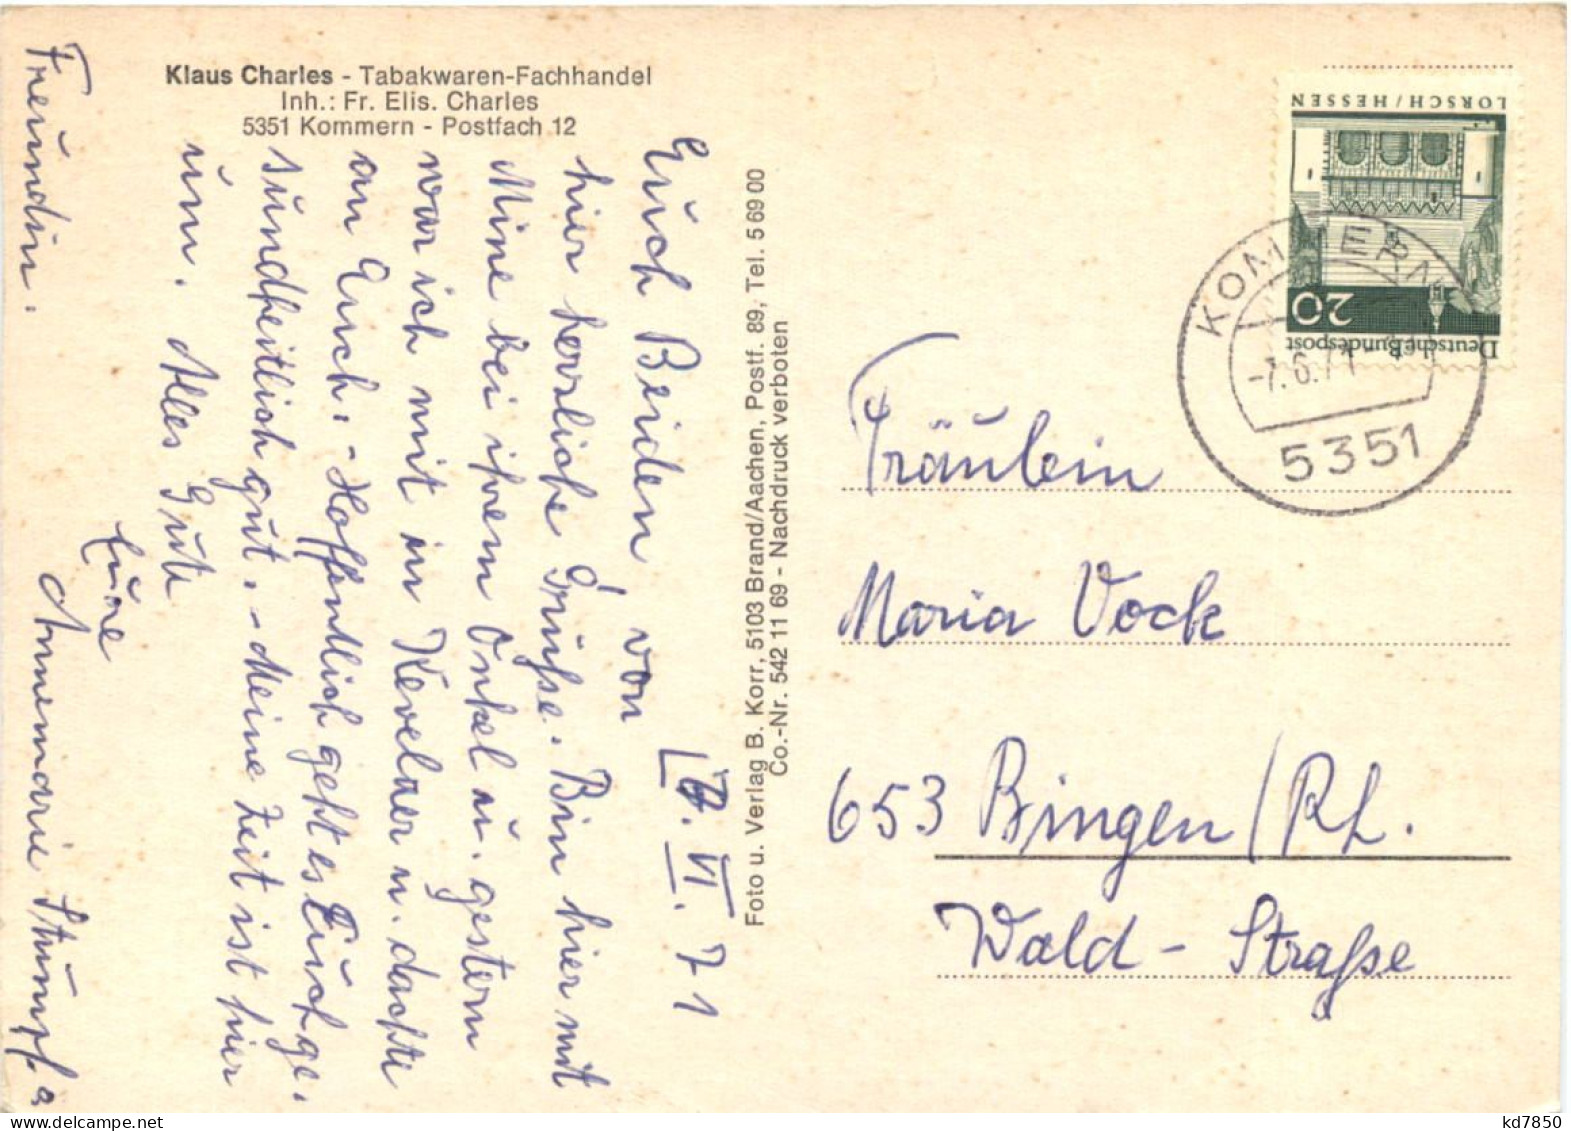 Klaus Charles - Tabakwaren-Fachhandel
Inh.: Fr. Elis. Charles
5351 Kommern - Postfach 12
7. VI. 71
Euch Beiden von
hier herzliche Grüße. Bin hier mit
Mine bei ihrem Onkel u. gestern
war ich mit in Kevelaer u. dachte
an Euch. - Hoffentlich geht es Euch ge-
sundheitlich gut. - Meine Zeit ist hier
um. Alles Gute
Eure
Annemarie Stümpf
Freundin.
Foto u. Verlag B. Korr, 5103 Brand/Aachen, Postf. 89, Tel. 5 69 00
Co.-Nr. 542 11 69 - Nachdruck verboten
LORSCH/HESSEN
20
Deutsche Bundespost
KOMMERN
-7.6.71
5351
Fräulein
Maria Vock
653 Bingen/Rh.
Wald-Straße
kd7850